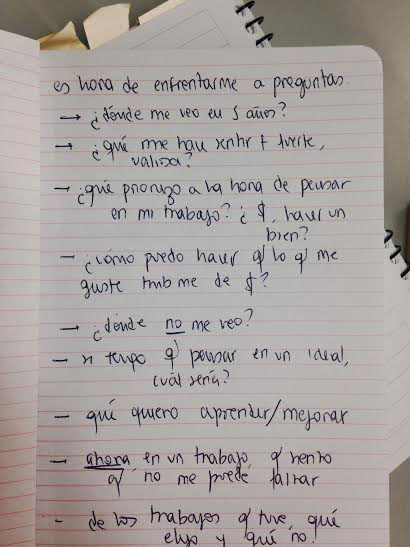 es hora de enfrentarme a preguntas.
→ ¿dónde me veo en 5 años?
→ ¿qué me hace sentir + fuerte,
valiosa?
→ ¿qué priorizo a la hora de pensar
en mi trabajo? ¿ $, hacer un
bien?
→ ¿cómo puedo hacer q' lo q' me
guste tmb me de $?
→ ¿dónde no me veo?
- si tengo q' pensar en un ideal,
cuál sería?
- qué quiero aprender/mejorar
- ahora, en un trabajo, q' siento
q' no me puede faltar
- de los trabajos q' tuve, qué
elijo y qué no!